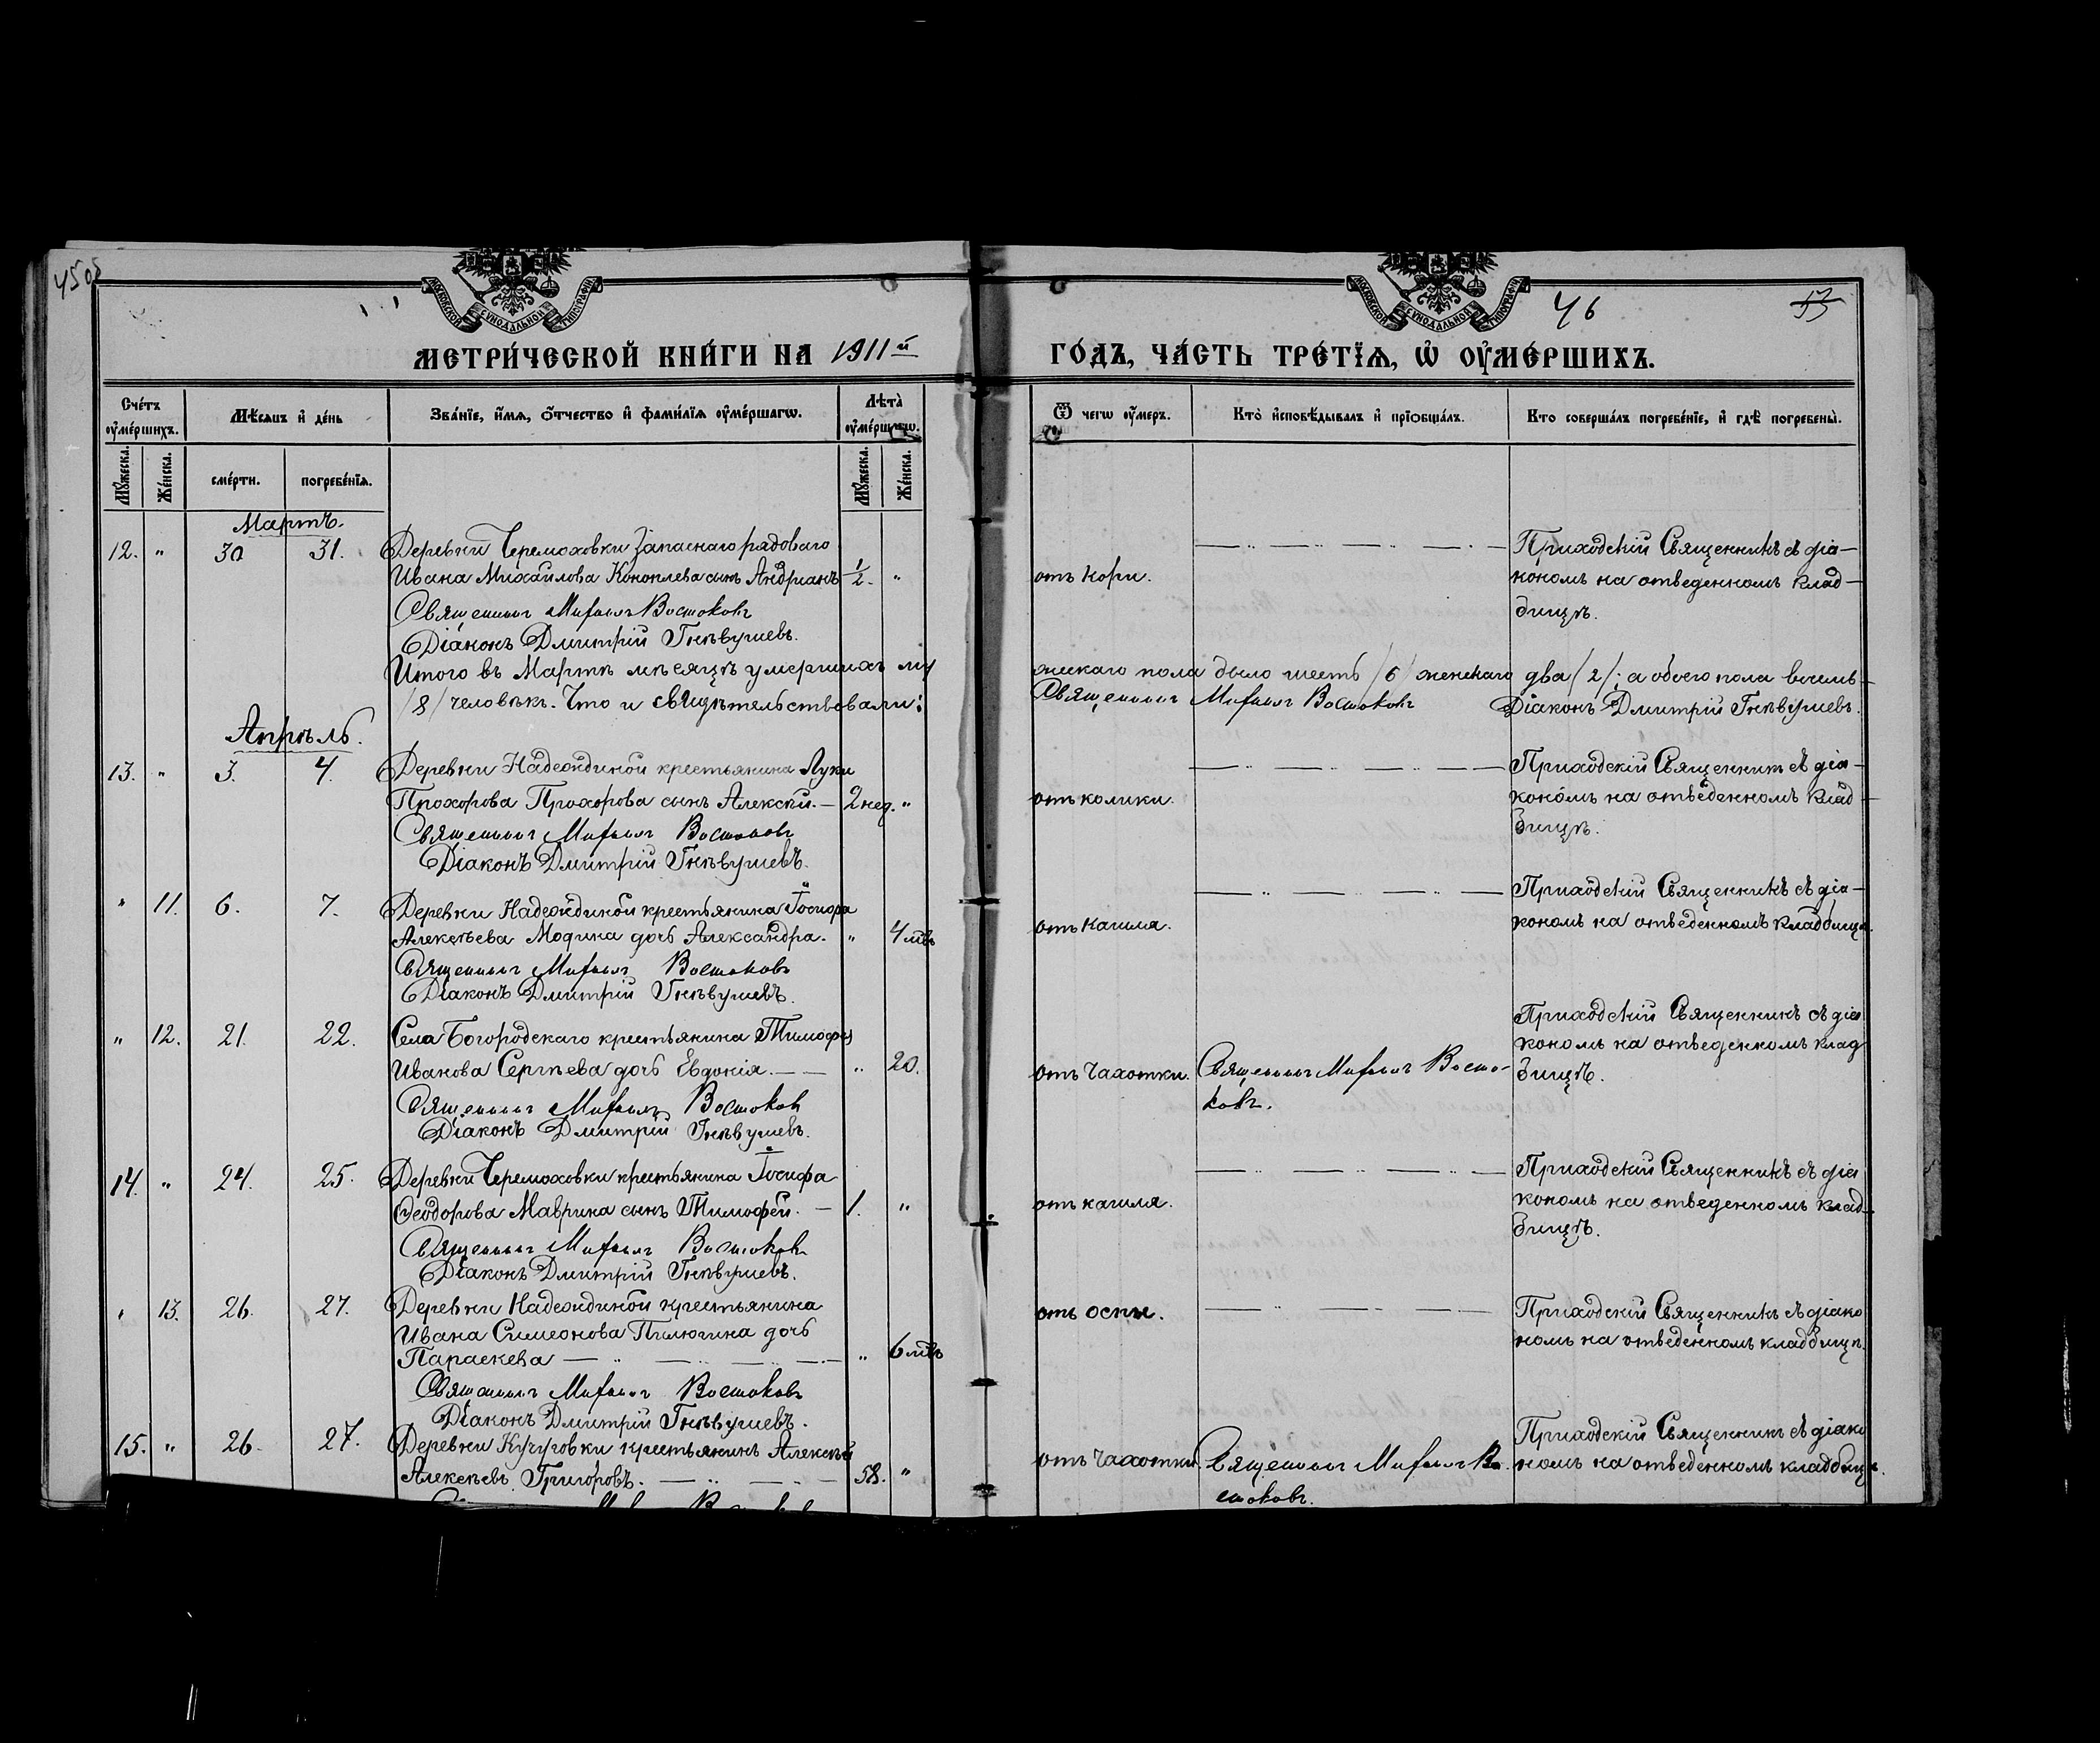 45об
МОСКОВСКОЙ СѴНОДАЛЬНОЙ ТИПОГРАФІИ
МОСКОВСКОЙ СѴНОДАЛЬНОЙ ТИПОГРАФІИ
46
МЕТРИ́ЧЕСКОЙ КНИ́ГИ НА 1911й ГО́ДЪ, ЧА́СТЬ ТРЕ́ТЇѦ, Ѽ ОУ҆МЕ́РШИХЪ.
Сче́тъ оу҆ме́ршихъ.
Мѣ́сѧцъ и҆ де́нь
Зва́нїе, и҆́мѧ, ѻ҆́тчество и҆ фами́лїѧ оу҆ме́ршагѡ.
Лѣта̀ оу҆ме́ршагѡ.
Ѿ чегѡ̀ оу҆́меръ.
Кто̀ и҆сповѣ́дывалъ и҆ прїѡбща́лъ.
Кто соверша́лъ погребе́нїе, и҆ гдѣ̀ погребены̀.
Мꙋ́жеска.
Же́нска.
сме́рти.
погребе́нїѧ.
Мꙋ́жеска.
Же́нска.
Мартъ.
12. " 30 31. Деревни Черемоховки запаснаго рядоваго
Ивана Михаилова Коноплева сынъ Андріанъ 1/2. "
Священникъ Михаилъ Востоковъ
Діаконъ Дмитрій Гнѣвушевъ.
отъ кори.
Приходскій Священникъ съ діа-
кономъ на отведенномъ клад-
бищѣ.
Итого въ Мартѣ мѣсяцѣ умершихъ му жескаго пола было шесть /6/ женскаго два /2/; а обоего пола восемь
/8/ человѣкъ. Что и свидѣтельствовали: Священникъ Михаилъ Востоковъ Діаконъ Дмитрій Гнѣвушевъ.
Апрѣль.
13. " 3. 4. Деревни Надеждиной крестьянина Луки
Прохорова Прохорова сынъ Алексѣй. — 2 нед. "
Священникъ Михаилъ Востоковъ
Діаконъ Дмитрій Гнѣвушевъ.
отъ колики.
Приходскій Священникъ съ діа-
кономъ на отведенномъ клад-
бищѣ.
" 11. 6. 7. Деревни Надеждиной крестьянина Іосифа
Алексѣева Модина дочь Александра. " 4 мѣс
Священникъ Михаилъ Востоковъ
Діаконъ Дмитрій Гнѣвушевъ.
отъ кашля.
Приходскій Священникъ съ діа-
кономъ на отведенномъ кладбищѣ.
" 12. 21. 22. Села Богородскаго крестьянина Тимофея
Иванова Сергѣева дочь Евдокія. — — " 20.
Священникъ Михаилъ Востоковъ
Діаконъ Дмитрій Гнѣвушевъ.
отъ чахотки.
Священникъ Михаилъ Восто-
ковъ.
Приходскій Священникъ съ діа
кономъ на отведенномъ клад
бищѣ.
14. " 24. 25. Деревни Черемоховки крестьянина Іосифа
Ѳеодорова Маврина сынъ Тимофей. — 1. "
Священникъ Михаилъ Востоковъ
Діаконъ Дмитрій Гнѣвушевъ.
отъ кашля.
Приходскій Священникъ съ діа
кономъ на отведенномъ клад-
бищѣ.
" 13. 26. 27. Деревни Надеждиной крестьянина
Ивана Симеонова Пилюгина дочь
Параскева — " 6 мѣс
Священникъ Михаилъ Востоковъ
Діаконъ Дмитрій Гнѣвушевъ.
отъ оспы.
Приходскій Священникъ съ діако
номъ на отведенномъ кладбищѣ.
15. " 26. 27. Деревни Кучуговки крестьянинъ Алексѣй
Алексѣевъ Григоровъ. — 58. "
отъ чахотки.
Священникъ Михаилъ Во-
стоковъ.
Приходскій Священникъ съ діако
номъ на отведенномъ кладбищѣ.